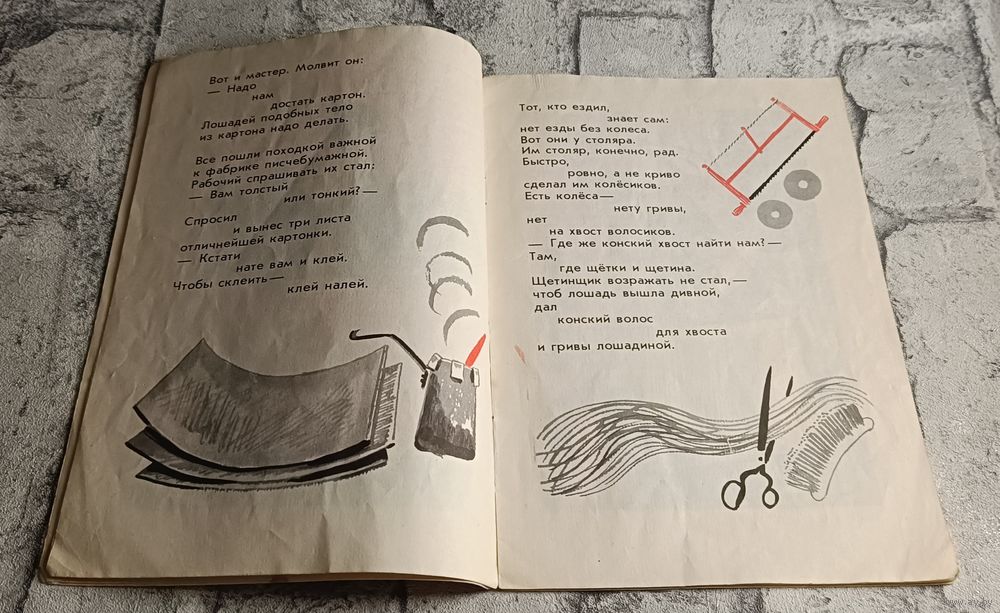 Вот и мастер. Молвит он:
— Надо
нам
достать картон.
Лошадей подобных тело
из картона надо делать.
Все пошли походкой важной
к фабрике писчебумажной.
Рабочий спрашивать их стал:
— Вам толстый
или тонкий? —
Спросил
и вынес три листа
отличнейшей картонки.
— Кстати
нате вам и клей.
Чтобы склеить —
клей налей.
Тот, кто ездил,
знает сам:
нет езды без колеса.
Вот они у столяра.
Им столяр, конечно, рад.
Быстро,
ровно, а не криво
сделал им колёсиков.
Есть колёса —
нету гривы,
нет
на хвост волосиков.
— Где же конский хвост найти нам? —
Там,
где щётки и щетина.
Щетинщик возражать не стал, —
чтоб лошадь вышла дивной,
дал
конский волос
для хвоста
и гривы лошадиной.